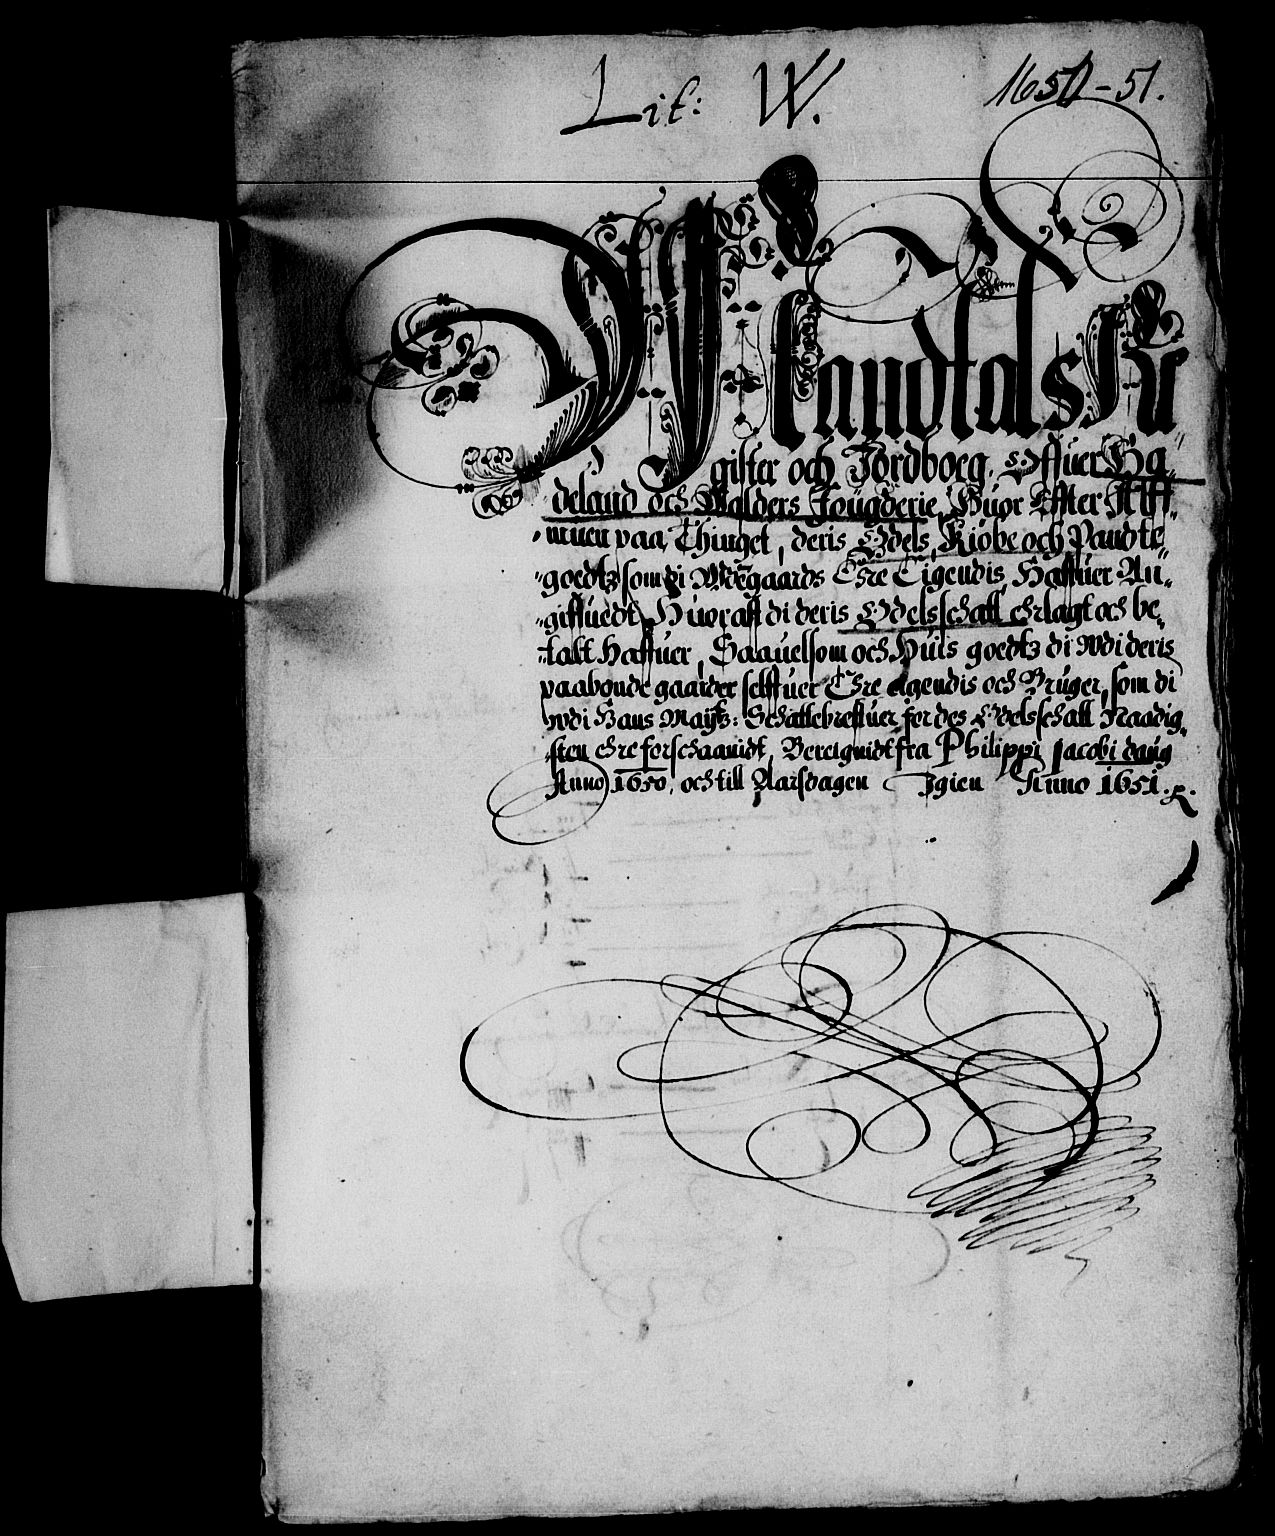 Lit: W. 1650-51.
Mandtals Re
gister och Jordboeg, Offuer Ha„
deland och Walders Fougderie, Huor Effter Alff„
„muen paa Thinget, deris Odels, Kiøbe och Pandte„
„goedtz som di Wdgaards Ehre Eigendis, Haffuer An„
„giffuedt, Huoraff di deris Odelsschatt ehrlagt och be„
„talt Haffuer, Saauelsom och Huis goedtz di wdi deris
paabonde gaarder selffuer Ehre eigendis och Bruger, som di
wdi Hans Maÿtz: Schattebreffuer for des Odelsschatt Naadig„
„sten ehre forschaanidt, Beregnidt fra Philippi Jacobi daug
Anno 1650, och till Aarsdagen Igien Anno 1651.